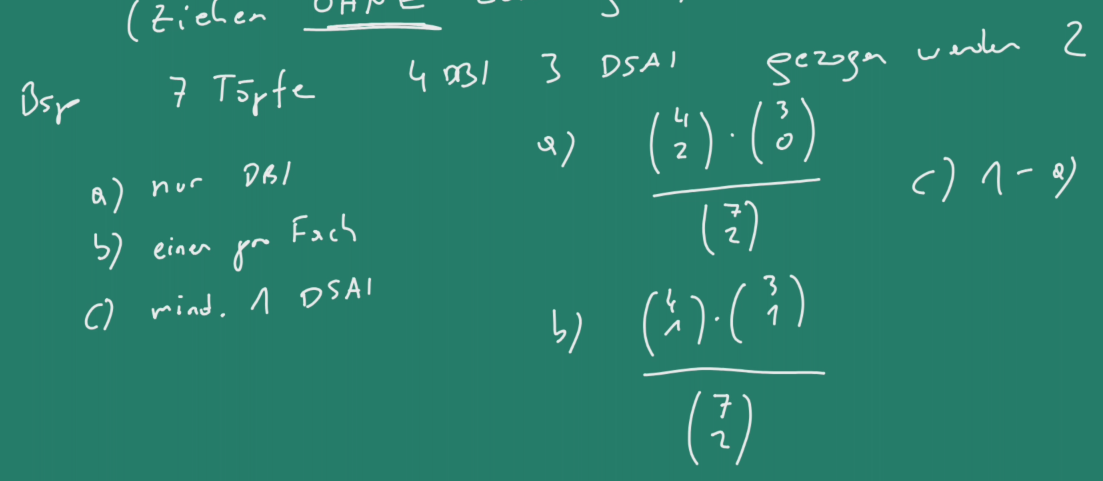 (Ziehen OHNE
Bsp 7 Töpfe 4 DBI 3 DSAI gezogen werden 2
a) nur DBI
b) einen pro Fach
c) mind. 1 DSAI
a) (4 2) · (3 0)
(7 2)
c) 1 - a)
b) (4 1) · (3 1)
(7 2)